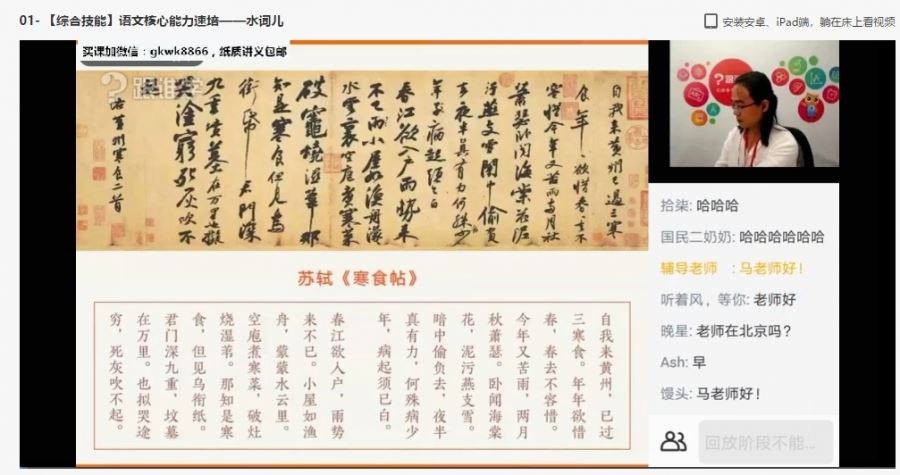 01-【综合技能】语文核心能力速培——水词儿
安装安卓、iPad端，躺在床上看视频
买课加微信：gkwk8866，纸质讲义包邮
跟谁学
自我來黃州已過三寒
食年年欲惜春春去不
容惜今年又苦雨兩月秋
蕭瑟卧聞海棠花泥
汙燕支雪闇中偷負
去夜半真有力何殊少
年子病起須已白
春江欲入戶雨勢來
不已雨小屋如漁舟濛濛
水雲裏空庖煮寒菜
破竈燒濕葦那
知是寒食但見烏
銜帋君門深
九重墳墓在萬里也擬
哭塗窮死灰吹不
起
右黃州寒食二首
苏轼《寒食帖》
自我来黄州，已过
三寒食。年年欲惜
春，春去不容惜。
今年又苦雨，两月
秋萧瑟。卧闻海棠
花，泥污燕支雪。
暗中偷负去，夜半
真有力，何殊病少
年，病起须已白。
春江欲入户，雨势
来不已。小屋如渔
舟，蒙蒙水云里。
空庖煮寒菜，破灶
烧湿苇。那知是寒
食，但见乌衔纸。
君门深九重，坟墓
在万里。也拟哭途
穷，死灰吹不起。
拾柒: 哈哈哈
国民二奶奶: 哈哈哈哈哈哈
辅导老师 : 马老师好！
听着风，等你: 老师好
晚星: 老师在北京吗？
Ash: 早
馒头: 马老师好！
回放阶段不能...